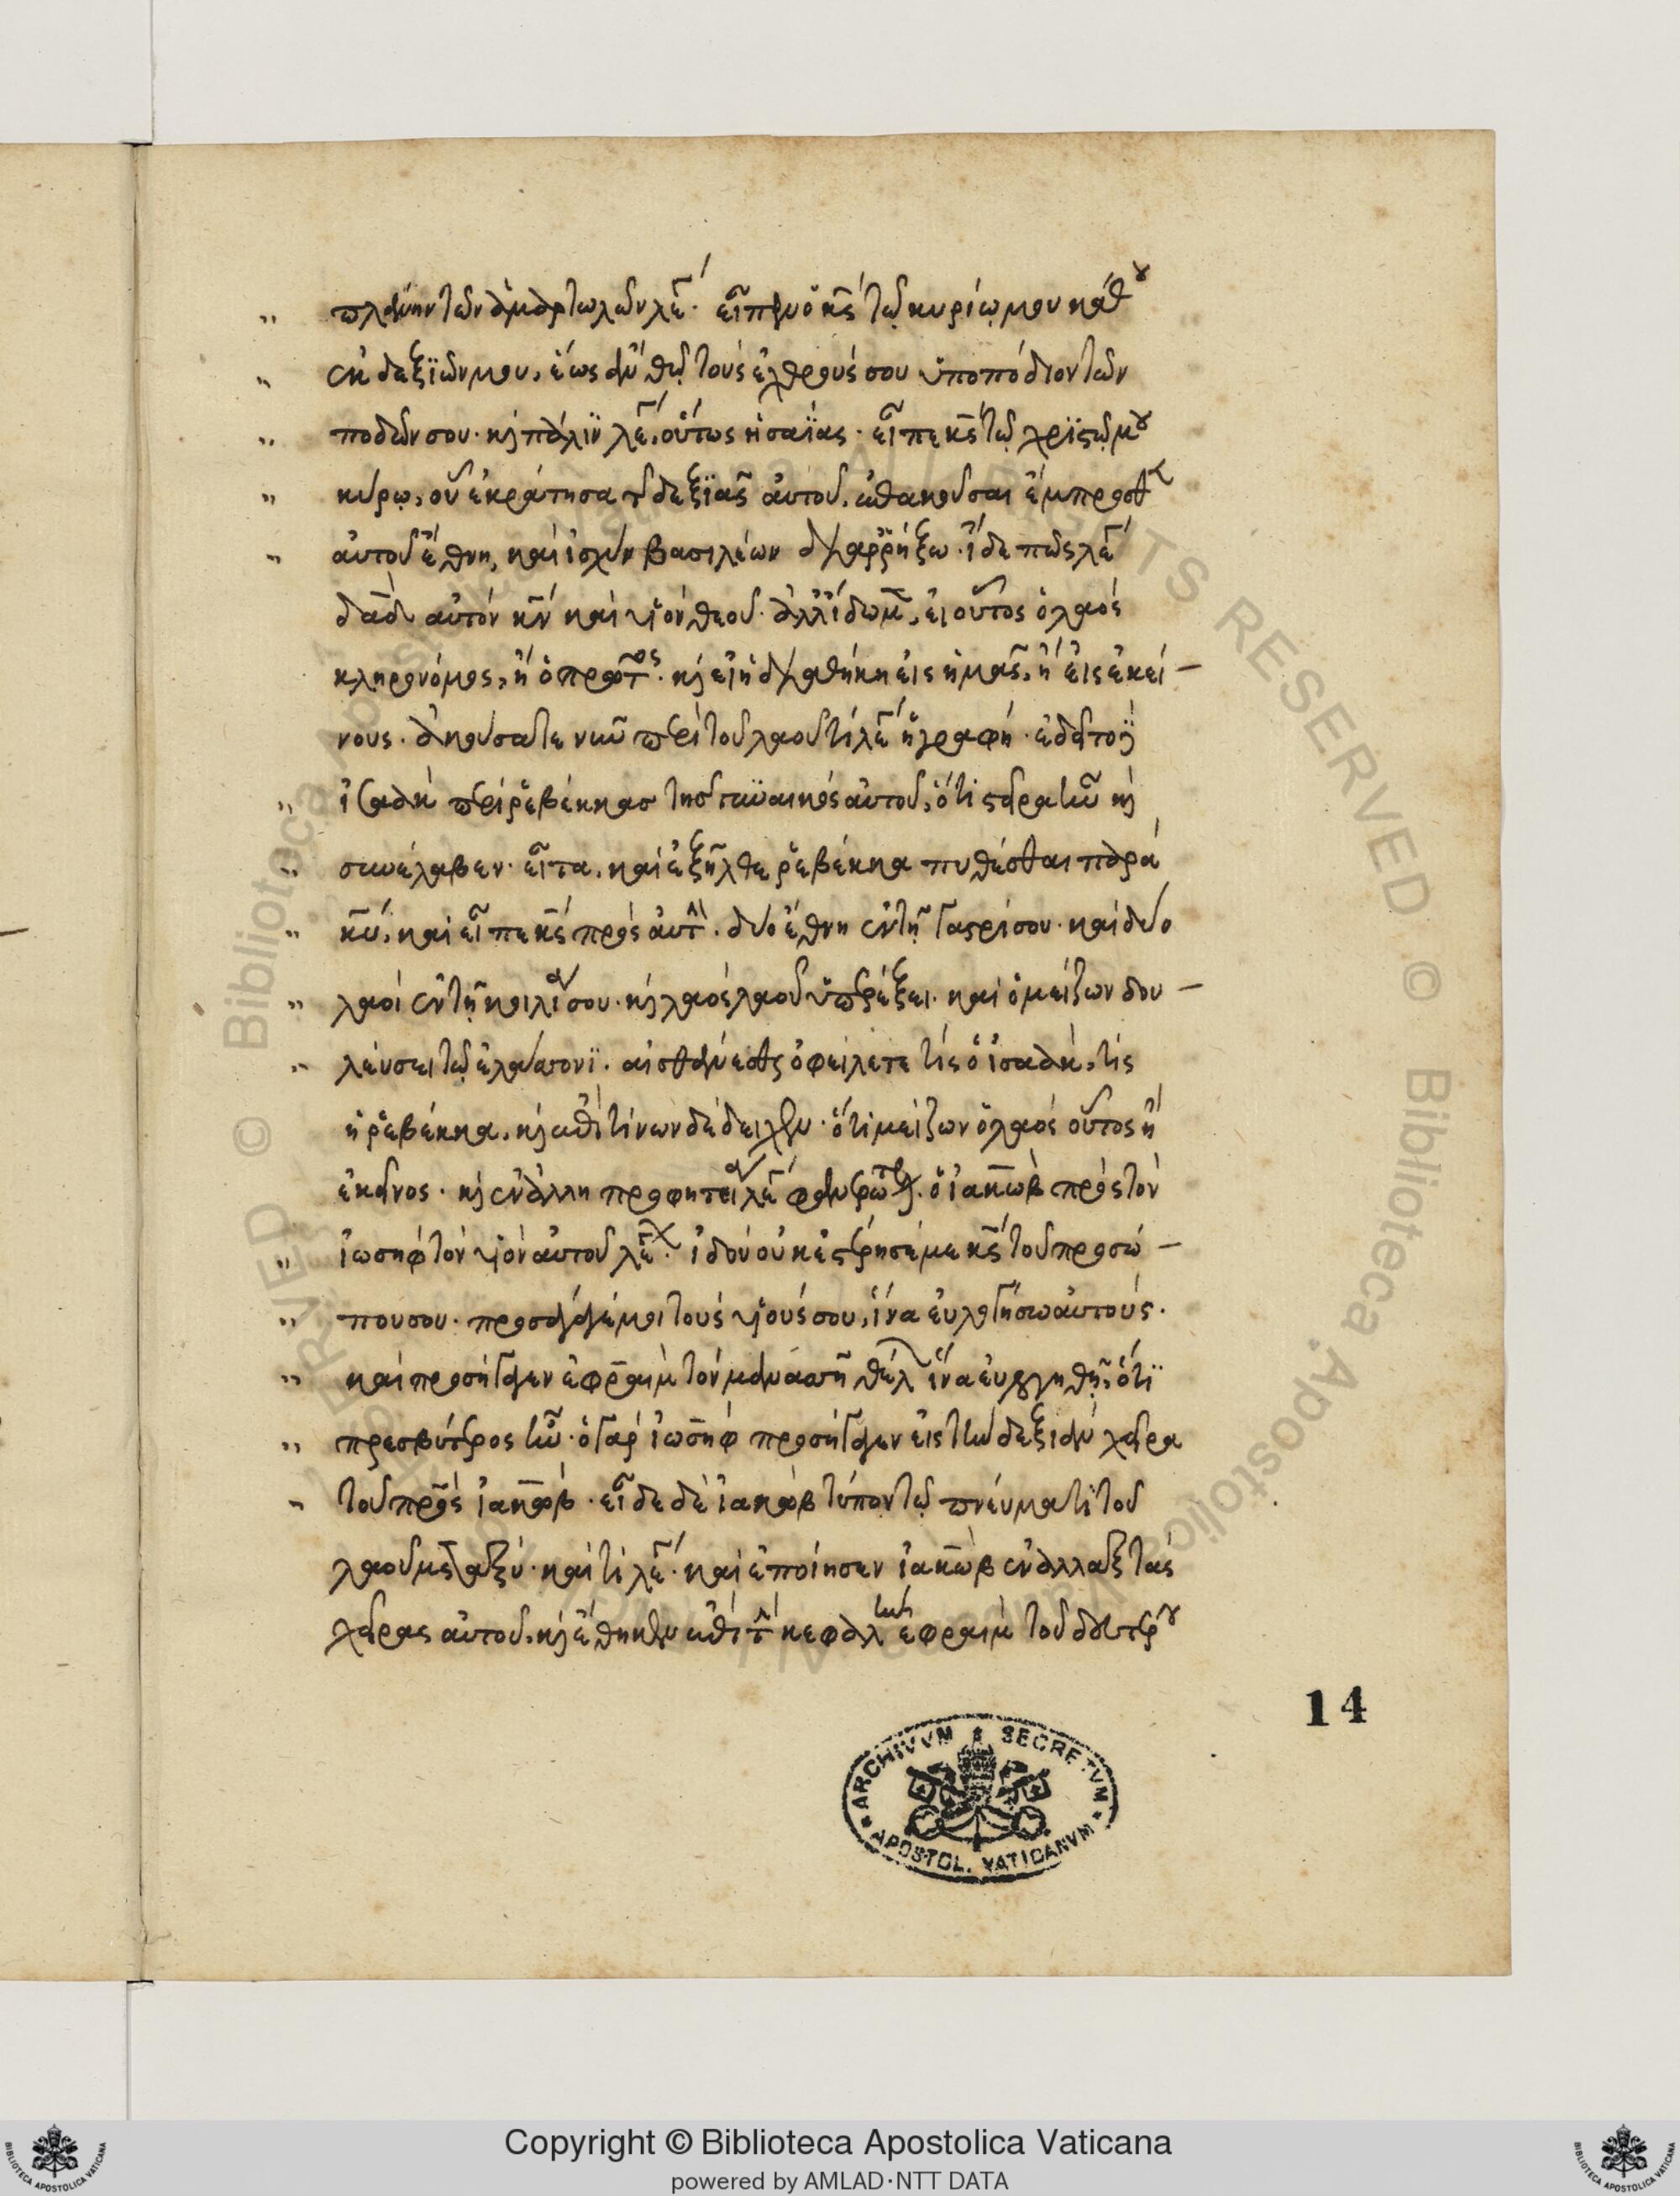 πλάνην τῶν ἁμαρτωλῶν λέ· εἶπεν ὁ κς τῷ κυρίῳ μου κάθου
ἐκ δεξϊῶν μου, ἕως ἂν θῶ τοὺς ἐχθρούς σου ὑποπόδιον τῶν
ποδῶν σου· κ πάλϊν λέ, οὕτως ἡσαΐας· εἶπε κς τῷ χρϊστῷ μου
κύρῳ, οὗ ἐκράτησα τ δεξϊᾶς αὐτοῦ, ἐπακοῦσαι ἔμπροσθεν
αὐτοῦ ἔθνη, καὶ ἰσχὺν βασιλέων διαρρήξω· ἴδε πῶς λέ
δαδ αὐτὸν κν καὶ υἱὸν θεοῦ· ἀλλ' ἴδωμ, εἰ οὗτος ὁ λαὸς
κληρονόμος, ἢ ὁ πρῶτος· κ εἰ ἡ διαθήκη εἰς ἡμᾶς, ἢ εἰς ἐκεί-
νους· ἀκούσατε νῦν περὶ τοῦ λαοῦ τί λέ ἡ γραφή· ἐδεῖτο
ἰσαὰκ περὶ ῥεβέκκας τῆς γυναικὸς αὐτοῦ, ὅτι στεῖρα ἦν κ
συνέλαβεν· εἶτα, καὶ ἐξῆλθε ῥεβέκκα πυθέσθαι παρὰ
κυ, καὶ εἶπε κς πρὸς αὐτήν· δύο ἔθνη ἐν τῇ γαστρί σου· καὶ δύο
λαοὶ ἐν τῇ κοιλία σου· κ λαὸς λαοῦ ὑπερέξει· καὶ ὁ μείζων δου-
λεύσει τῷ ἐλάττονϊ· αἰσθάνεσθε ὀφείλετε τίς ὁ ἰσαὰκ, τίς
ἡ ῥεβέκκα, κ ἐπὶ τίνων δέδειχεν· ὅτι μείζων ὁ λαὸς οὗτος ἢ
ἐκεῖνος· κ ἐν ἄλλη προφητεία λέ φανερώτερ ὁ ἰακὼβ πρὸς τὸν
ἰωσὴφ τὸν υἱὸν αὐτοῦ λέ· ἰδοὺ οὐκ ἐστέρησέ με κς τοῦ προσώ-
που σου· προσάγαγέ μοι τοὺς υἱούς σου, ἵνα εὐλογήσω αὐτούς·
καὶ προσήγαγεν ἐφραὶμ τὸν μανασσῆ θέλ ἵνα εὐλογηθῇ, ὅτϊ
πρεσβύτερος ἦν· ὁ γὰρ ἰωσὴφ προσήγαγεν εἰς τὴν δεξιὰν χεῖρα
τοῦ πρς ἰακώβ· εἶδε δὲ ἰακὼβ τύπον τῷ πνεύματι τοῦ
λαοῦ μεταξύ· καὶ τί λέ· καὶ ἐποίησεν ἰακὼβ ἐναλλὰξ τὰς
χεῖρας αὐτοῦ, κ ἔθηκεν ἐπὶ τ κεφαλὴν ἐφραὶμ τοῦ δευτέρου
14
ARCHIVVM SECRETVM
APOSTOL. VATICANVM
© Biblioteca Apostolica Vaticana ALL RIGHTS RESERVED
Copyright © Biblioteca Apostolica Vaticana
powered by AMLAD·NTT DATA